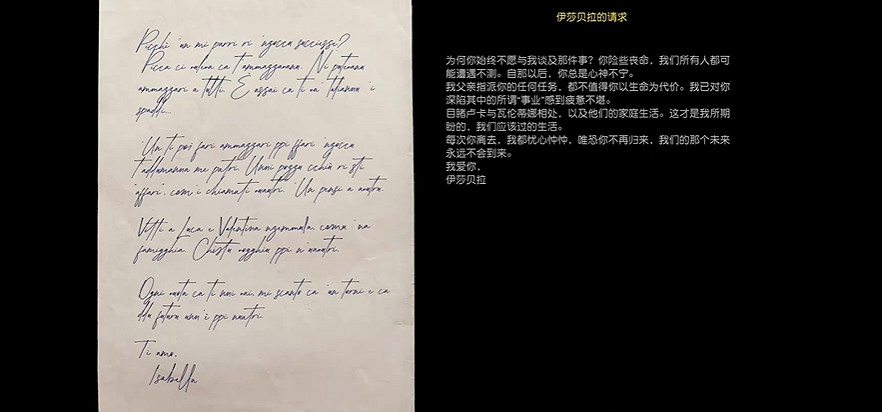 Picchì 'un mi parri ri 'nzocca successe?
Picca ci vuleva ca t'ammazzavanu. Ni putevanu
ammazzari a tutti. E assai ca ti va' taliannu 'i
spaddi...
'Un ti poi fari ammazzari ppi ffari 'nzocca
t'addumanna me patri. Unni pozzu cchiù ri sti
'affari', com'i chiamati vuautri. 'Un pensi a nuatri.
Vitti a Luca e Valentina nzemmula, comu 'na
famigghia. Chistu vogghiu ppi n'uautri.
Ogni vota ca ti nni vai, mi scantu ca 'un torni e ca
ddu futuru unn'è ppi nuatri.
Ti amo,
Isabella
伊莎贝拉的请求
为何你始终不愿与我谈及那件事？你险些丧命，我们所有人都可
能遭遇不测。自那以后，你总是心神不宁。
我父亲指派你的任何任务，都不值得你以生命为代价。我已对你
深陷其中的所谓“事业”感到疲惫不堪。
目睹卢卡与瓦伦蒂娜相处，以及他们的家庭生活。这才是我所期
盼的，我们应该过的生活。
每次你离去，我都忧心忡忡，唯恐你不再归来，我们的那个未来
永远不会到来。
我爱你，
伊莎贝拉